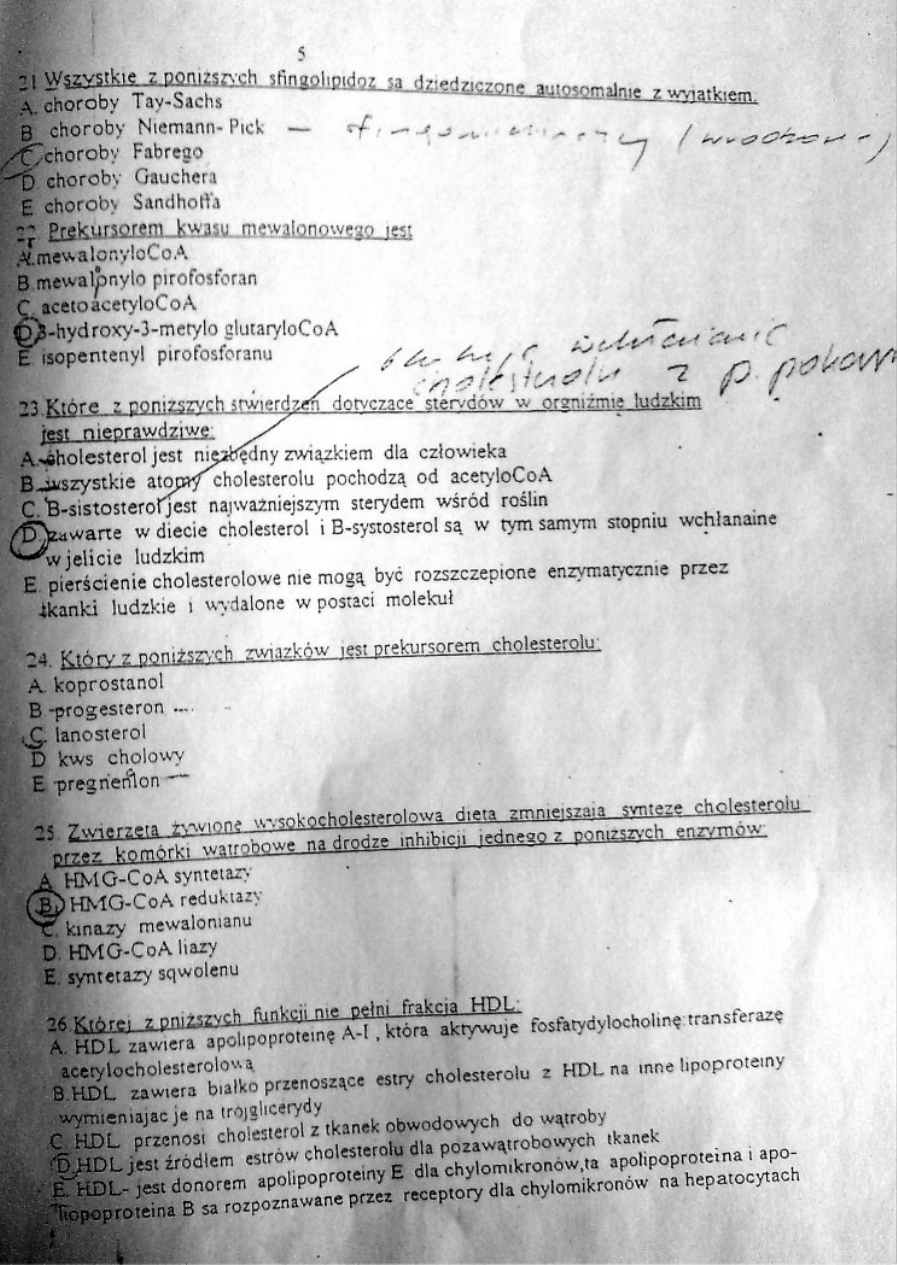 5
21 Wszystkie z poniższych sfingolipidoz sa dziedziczone autosomalnie z wyjatkiem:
A. choroby Tay-Sachs
B choroby Niemann-Pick —
C choroby Fabrego
D choroby Gauchera
E choroby Sandhoffa
22. Prekursorem kwasu mewalonowego jest
A.mewalonyloCoA
B mewalonylo pirofosforan
C. acetoacetyloCoA
D 3-hydroxy-3-metylo glutaryloCoA
E isopentenyl pirofosforanu
cholesterolu z p. pokarm
23.Które z poniższych stwierdzeń dotyczace sterydów w orgniźmie ludzkim
jest nieprawdziwe:
A. cholesterol jest niezbędny związkiem dla człowieka
B. wszystkie atomy cholesterolu pochodzą od acetyloCoA
C. B-sistosterol jest najważniejszym sterydem wśród roślin
D. zawarte w diecie cholesterol i B-systosterol są w tym samym stopniu wchłanaine
w jelicie ludzkim
E. pierścienie cholesterolowe nie mogą być rozszczepione enzymatycznie przez
tkanki ludzkie i wydalone w postaci molekuł
24. Który z poniższych zwiazków jest prekursorem cholesterolu:
A. koprostanol
B -progesteron
C. lanosterol
D kws cholowy
E pregnenlon
25. Zwierzeta żywione wysokocholesterolowa dieta zmniejszaja synteze cholesterolu
przez komórki wątrobowe na drodze inhibicji jednego z poniższych enzymów:
A HMG-CoA syntetazy
B. HMG-CoA reduktazy
C. kinazy mewalonianu
D. HMG-CoA liazy
E. syntetazy sqwolenu
26.Której z pniższych funkcji nie pełni frakcja HDL:
A. HDL zawiera apolipoproteinę A-I , która aktywuje fosfatydylocholinę:transferazę
acetylocholesterolową
B.HDL zawiera białko przenoszące estry cholesterolu z HDL na inne lipoproteiny
wymieniajac je na trójglicerydy
C HDL przenosi cholesterol z tkanek obwodowych do wątroby
D.HDL jest źródłem estrów cholesterolu dla pozawątrobowych tkanek
E. HDL- jest donorem apolipoproteiny E dla chylomikronów,ta apolipoproteina i apo-
liopoproteina B sa rozpoznawane przez receptory dla chylomikronów na hepatocytach